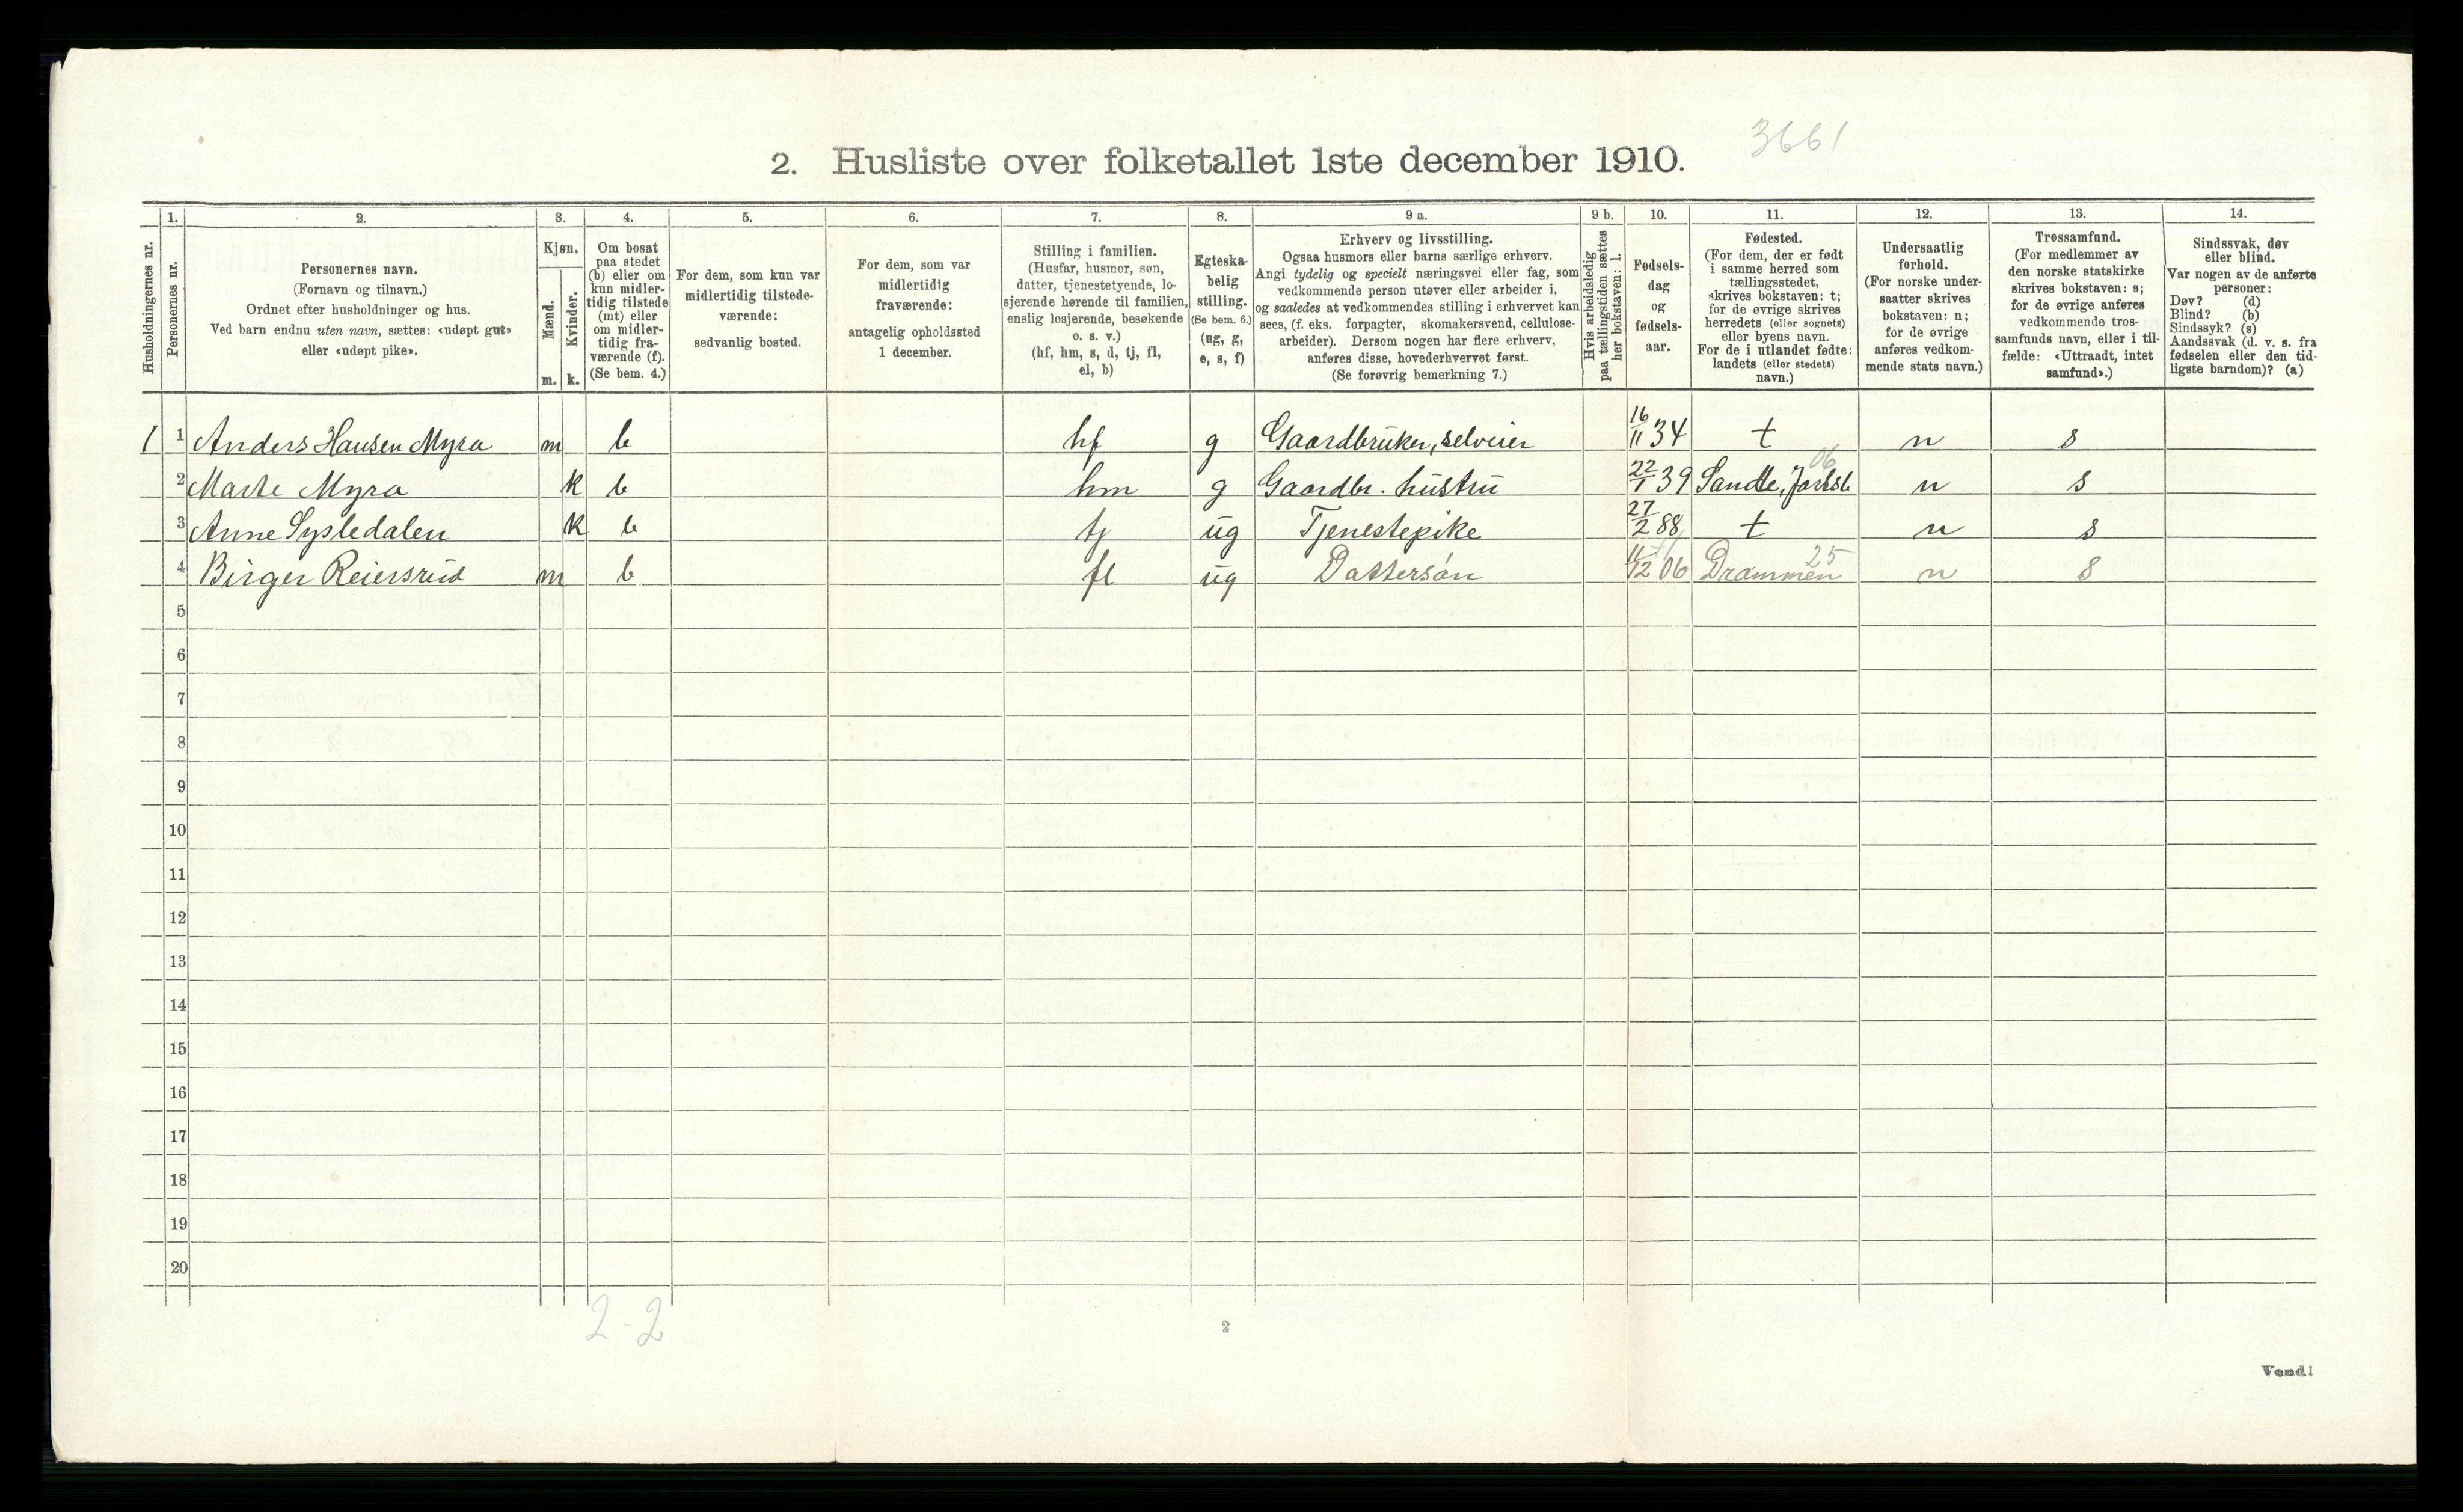 3661
2. Husliste over folketallet 1ste december 1910.
1. 2. 3. 4. 5. 6. 7. 8. 9 a. 9 b. 10. 11. 12. 13. 14.
Husholdningernes nr.
Personernes nr.
Personernes navn.
(Fornavn og tilnavn.)
Ordnet efter husholdninger og hus.
Ved barn endnu uten navn, sættes: «udøpt gut»
eller «udøpt pike».
Kjøn.
Mænd.
Kvinder.
m. k.
Om bosat
paa stedet
(b) eller om
kun midler-
tidig tilstede
(mt) eller
om midler-
tidig fra-
værende (f).
(Se bem. 4.)
For dem, som kun var
midlertidig tilstede-
værende:
sedvanlig bosted.
For dem, som var
midlertidig
fraværende:
antagelig opholdssted
1 december.
Stilling i familien.
(Husfar, husmor, søn,
datter, tjenestetyende, lo-
sjerende hørende til familien,
enslig losjerende, besøkende
o. s. v.)
(hf, hm, s, d, tj, fl,
el, b)
Egteska-
belig
stilling.
(Se bem. 6.)
(ug, g,
e, s, f)
Erhverv og livsstilling.
Ogsaa husmors eller barns særlige erhverv.
Angi tydelig og specielt næringsvei eller fag, som
vedkommende person utøver eller arbeider i,
og saaledes at vedkommendes stilling i erhvervet kan
sees, (f. eks. forpagter, skomakersvend, cellulose-
arbeider). Dersom nogen har flere erhverv,
anføres disse, hovederhvervet først.
(Se forøvrig bemerkning 7.)
Hvis arbeidsledig
paa tællingstiden sættes
her bokstaven: l.
Fødsels-
dag
og
fødsels-
aar.
Fødested.
(For dem, der er født
i samme herred som
tællingsstedet,
skrives bokstaven: t;
for de øvrige skrives
herredets (eller sognets)
eller byens navn.
For de i utlandet fødte:
landets (eller stedets)
navn.)
Undersaatlig
forhold.
(For norske under-
saatter skrives
bokstaven: n;
for de øvrige
anføres vedkom-
mende stats navn.)
Trossamfund.
(For medlemmer av
den norske statskirke
skrives bokstaven: s;
for de øvrige anføres
vedkommende tros-
samfunds navn, eller i til-
fælde: «Uttraadt, intet
samfund».)
Sindssvak, døv
eller blind.
Var nogen av de anførte
personer:
Døv? (d)
Blind? (b)
Sindssyk? (s)
Aandssvak (d. v. s. fra
fødselen eller den tid-
ligste barndom)? (a)
1 1 Anders Hansen Myra m b hf g Gaardbruker, selveier 16/11 34 t n s
06
2 Marte Myra k b hm g Gaardbr. hustru 22/1 39 Sande, Jarlsb. n s
3 Anne Sysledalen k b tj ug Tjenestepike 27/2 88 t n s
25
4 Birger Reiersrud m b fl ug Dattersøn 11/12 06 Drammen n s
5
6
7
8
9
10
11
12
13
14
15
16
17
18
19
20
2-2
2
Vend!